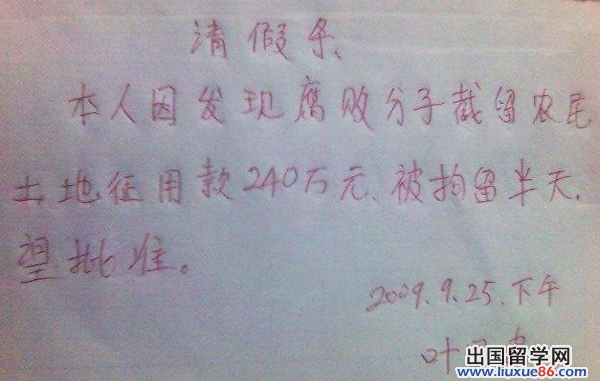 请假条
本人因发现腐败分子截留农民
土地征用款240万元、被拘留半天.
望批准。
2009.9.25.下午
叶
出国留学网
www.liuxue86.com